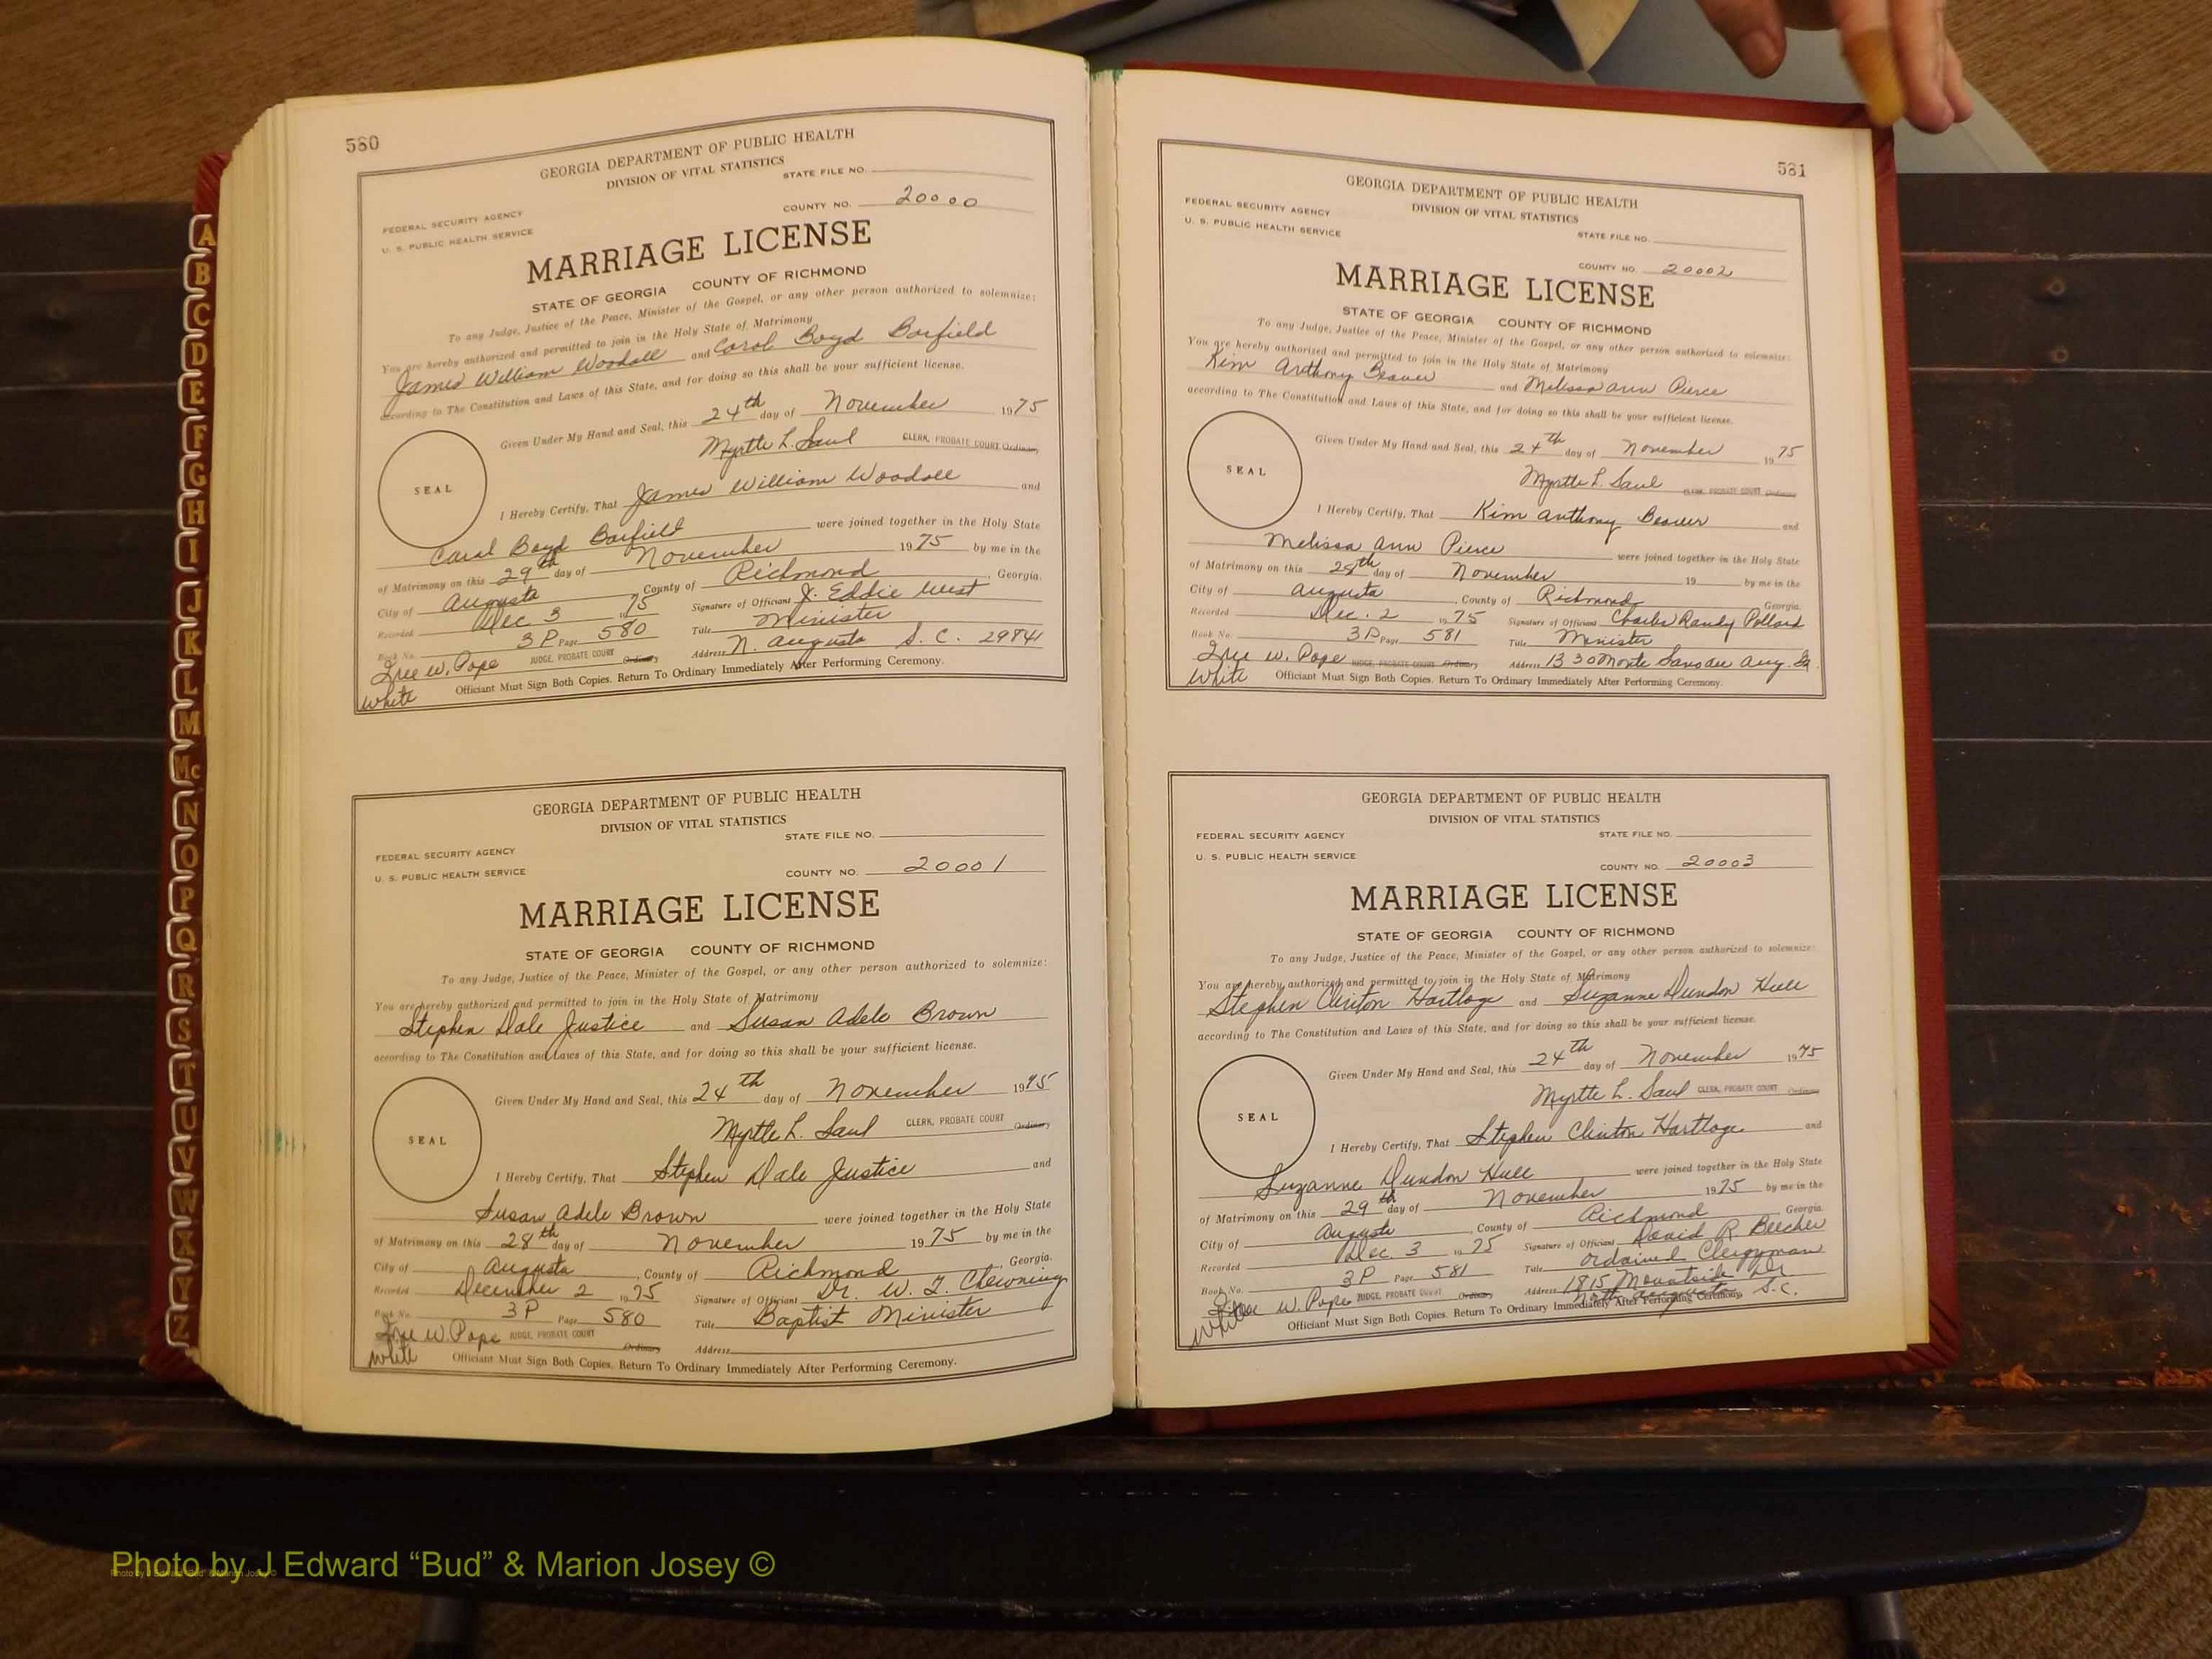 A
B
C
D
E
F
G
H
I
J
K
L
M
Mc
N
O
P
Q
R
S
T
U
V
W
X
Y
Z
580
GEORGIA DEPARTMENT OF PUBLIC HEALTH
DIVISION OF VITAL STATISTICS
STATE FILE NO.
FEDERAL SECURITY AGENCY
U. S. PUBLIC HEALTH SERVICE
COUNTY NO. 20000
MARRIAGE LICENSE
STATE OF GEORGIA COUNTY OF RICHMOND
To any Judge, Justice of the Peace, Minister of the Gospel, or any other person authorized to solemnize:
You are hereby authorized and permitted to join in the Holy State of Matrimony
James William Woodall and Carol Boyd Barfield
according to The Constitution and Laws of this State, and for doing so this shall be your sufficient license.
Given Under My Hand and Seal, this 24th day of November 1975
Myrtle L. Saul CLERK, PROBATE COURT Ordinary
SEAL
I Hereby Certify, That James William Woodall and
Carol Boyd Barfield were joined together in the Holy State
of Matrimony on this 29th day of November 1975 by me in the
City of Augusta, County of Richmond, Georgia.
Recorded Dec 3 1975 Signature of Officiant J. Eddie West
Book No. 3P Page 580 Title Minister
W. Pope JUDGE, PROBATE COURT Ordinary Address N. Augusta S. C. 29841
White Officiant Must Sign Both Copies. Return To Ordinary Immediately After Performing Ceremony.
GEORGIA DEPARTMENT OF PUBLIC HEALTH
DIVISION OF VITAL STATISTICS
STATE FILE NO.
FEDERAL SECURITY AGENCY
U. S. PUBLIC HEALTH SERVICE
COUNTY NO. 20001
MARRIAGE LICENSE
STATE OF GEORGIA COUNTY OF RICHMOND
To any Judge, Justice of the Peace, Minister of the Gospel, or any other person authorized to solemnize:
You are hereby authorized and permitted to join in the Holy State of Matrimony
Stephen Dale Justice and Susan Adele Brown
according to The Constitution and Laws of this State, and for doing so this shall be your sufficient license.
Given Under My Hand and Seal, this 24th day of November 1975
Myrtle L. Saul CLERK, PROBATE COURT Ordinary
SEAL
I Hereby Certify, That Stephen Dale Justice and
Susan Adele Brown were joined together in the Holy State
of Matrimony on this 28th day of November 1975 by me in the
City of Augusta, County of Richmond, Georgia.
Recorded December 2 1975 Signature of Officiant Dr. W. T. Clewning
Book No. 3P Page 580 Title Baptist Minister
W. Pope JUDGE, PROBATE COURT Ordinary Address
White Officiant Must Sign Both Copies. Return To Ordinary Immediately After Performing Ceremony.
581
GEORGIA DEPARTMENT OF PUBLIC HEALTH
DIVISION OF VITAL STATISTICS
FEDERAL SECURITY AGENCY
U. S. PUBLIC HEALTH SERVICE
STATE FILE NO.
COUNTY NO. 20002
MARRIAGE LICENSE
STATE OF GEORGIA COUNTY OF RICHMOND
To any Judge, Justice of the Peace, Minister of the Gospel, or any other person authorized to solemnize:
You are hereby authorized and permitted to join in the Holy State of Matrimony
Kim Anthony Beaver and Melissa Ann Pierce
according to The Constitution and Laws of this State, and for doing so this shall be your sufficient license.
Given Under My Hand and Seal, this 24th day of November 1975
Myrtle L. Saul CLERK, PROBATE COURT Ordinary
SEAL
I Hereby Certify, That Kim Anthony Beaver and
Melissa Ann Pierce were joined together in the Holy State
of Matrimony on this day of November 19 by me in the
City of Augusta, County of Richmond Georgia.
Recorded Dec. 2 1975 Signature of Officiant Charles Randy Pollard
Book No. 3P Page 581 Title Minister
W. Pope JUDGE, PROBATE COURT Ordinary Address 1330 Monte Sano Ave Aug. Ga
White Officiant Must Sign Both Copies. Return To Ordinary Immediately After Performing Ceremony.
GEORGIA DEPARTMENT OF PUBLIC HEALTH
DIVISION OF VITAL STATISTICS
FEDERAL SECURITY AGENCY
STATE FILE NO.
U. S. PUBLIC HEALTH SERVICE
COUNTY NO. 20003
MARRIAGE LICENSE
STATE OF GEORGIA COUNTY OF RICHMOND
To any Judge, Justice of the Peace, Minister of the Gospel, or any other person authorized to solemnize:
You are hereby authorized and permitted to join in the Holy State of Matrimony
Stephen Clinton Hartloge and Suzanne Dundon Hull
according to The Constitution and Laws of this State, and for doing so this shall be your sufficient license.
Given Under My Hand and Seal, this 24th day of November 1975
Myrtle L. Saul CLERK, PROBATE COURT Ordinary
SEAL
I Hereby Certify, That Stephen Clinton Hartloge and
Suzanne Dundon Hull were joined together in the Holy State
of Matrimony on this 29th day of November 1975 by me in the
City of Augusta, County of Richmond Georgia
Recorded Dec. 3 1975 Signature of Officiant David R. Beecher
Book No. 3P Page 581 Title Ordained Clergyman
W. Pope JUDGE, PROBATE COURT Ordinary Address 1815 Dr.
North Augusta S.C.
White Officiant Must Sign Both Copies. Return To Ordinary Immediately After Performing Ceremony.
Photo by J Edward “Bud” & Marion Josey ©
Photo by J Edward “Bud” & Marion Josey ©